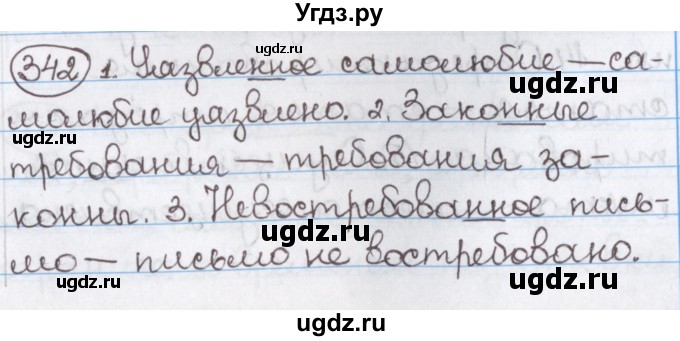 Угдз.ру
342 1. Уязвленное самолюбие — са-
молюбие уязвлено. 2. Законные
требования — требования за-
конны. 3. Невостребованное пись-
мо — письмо не востребовано.
gdz.ru
ugdz.ru
ugdz.ru
ugdz.ru
ugdz.ru
ugdz.ru
ugdz.ru
ugdz.ru